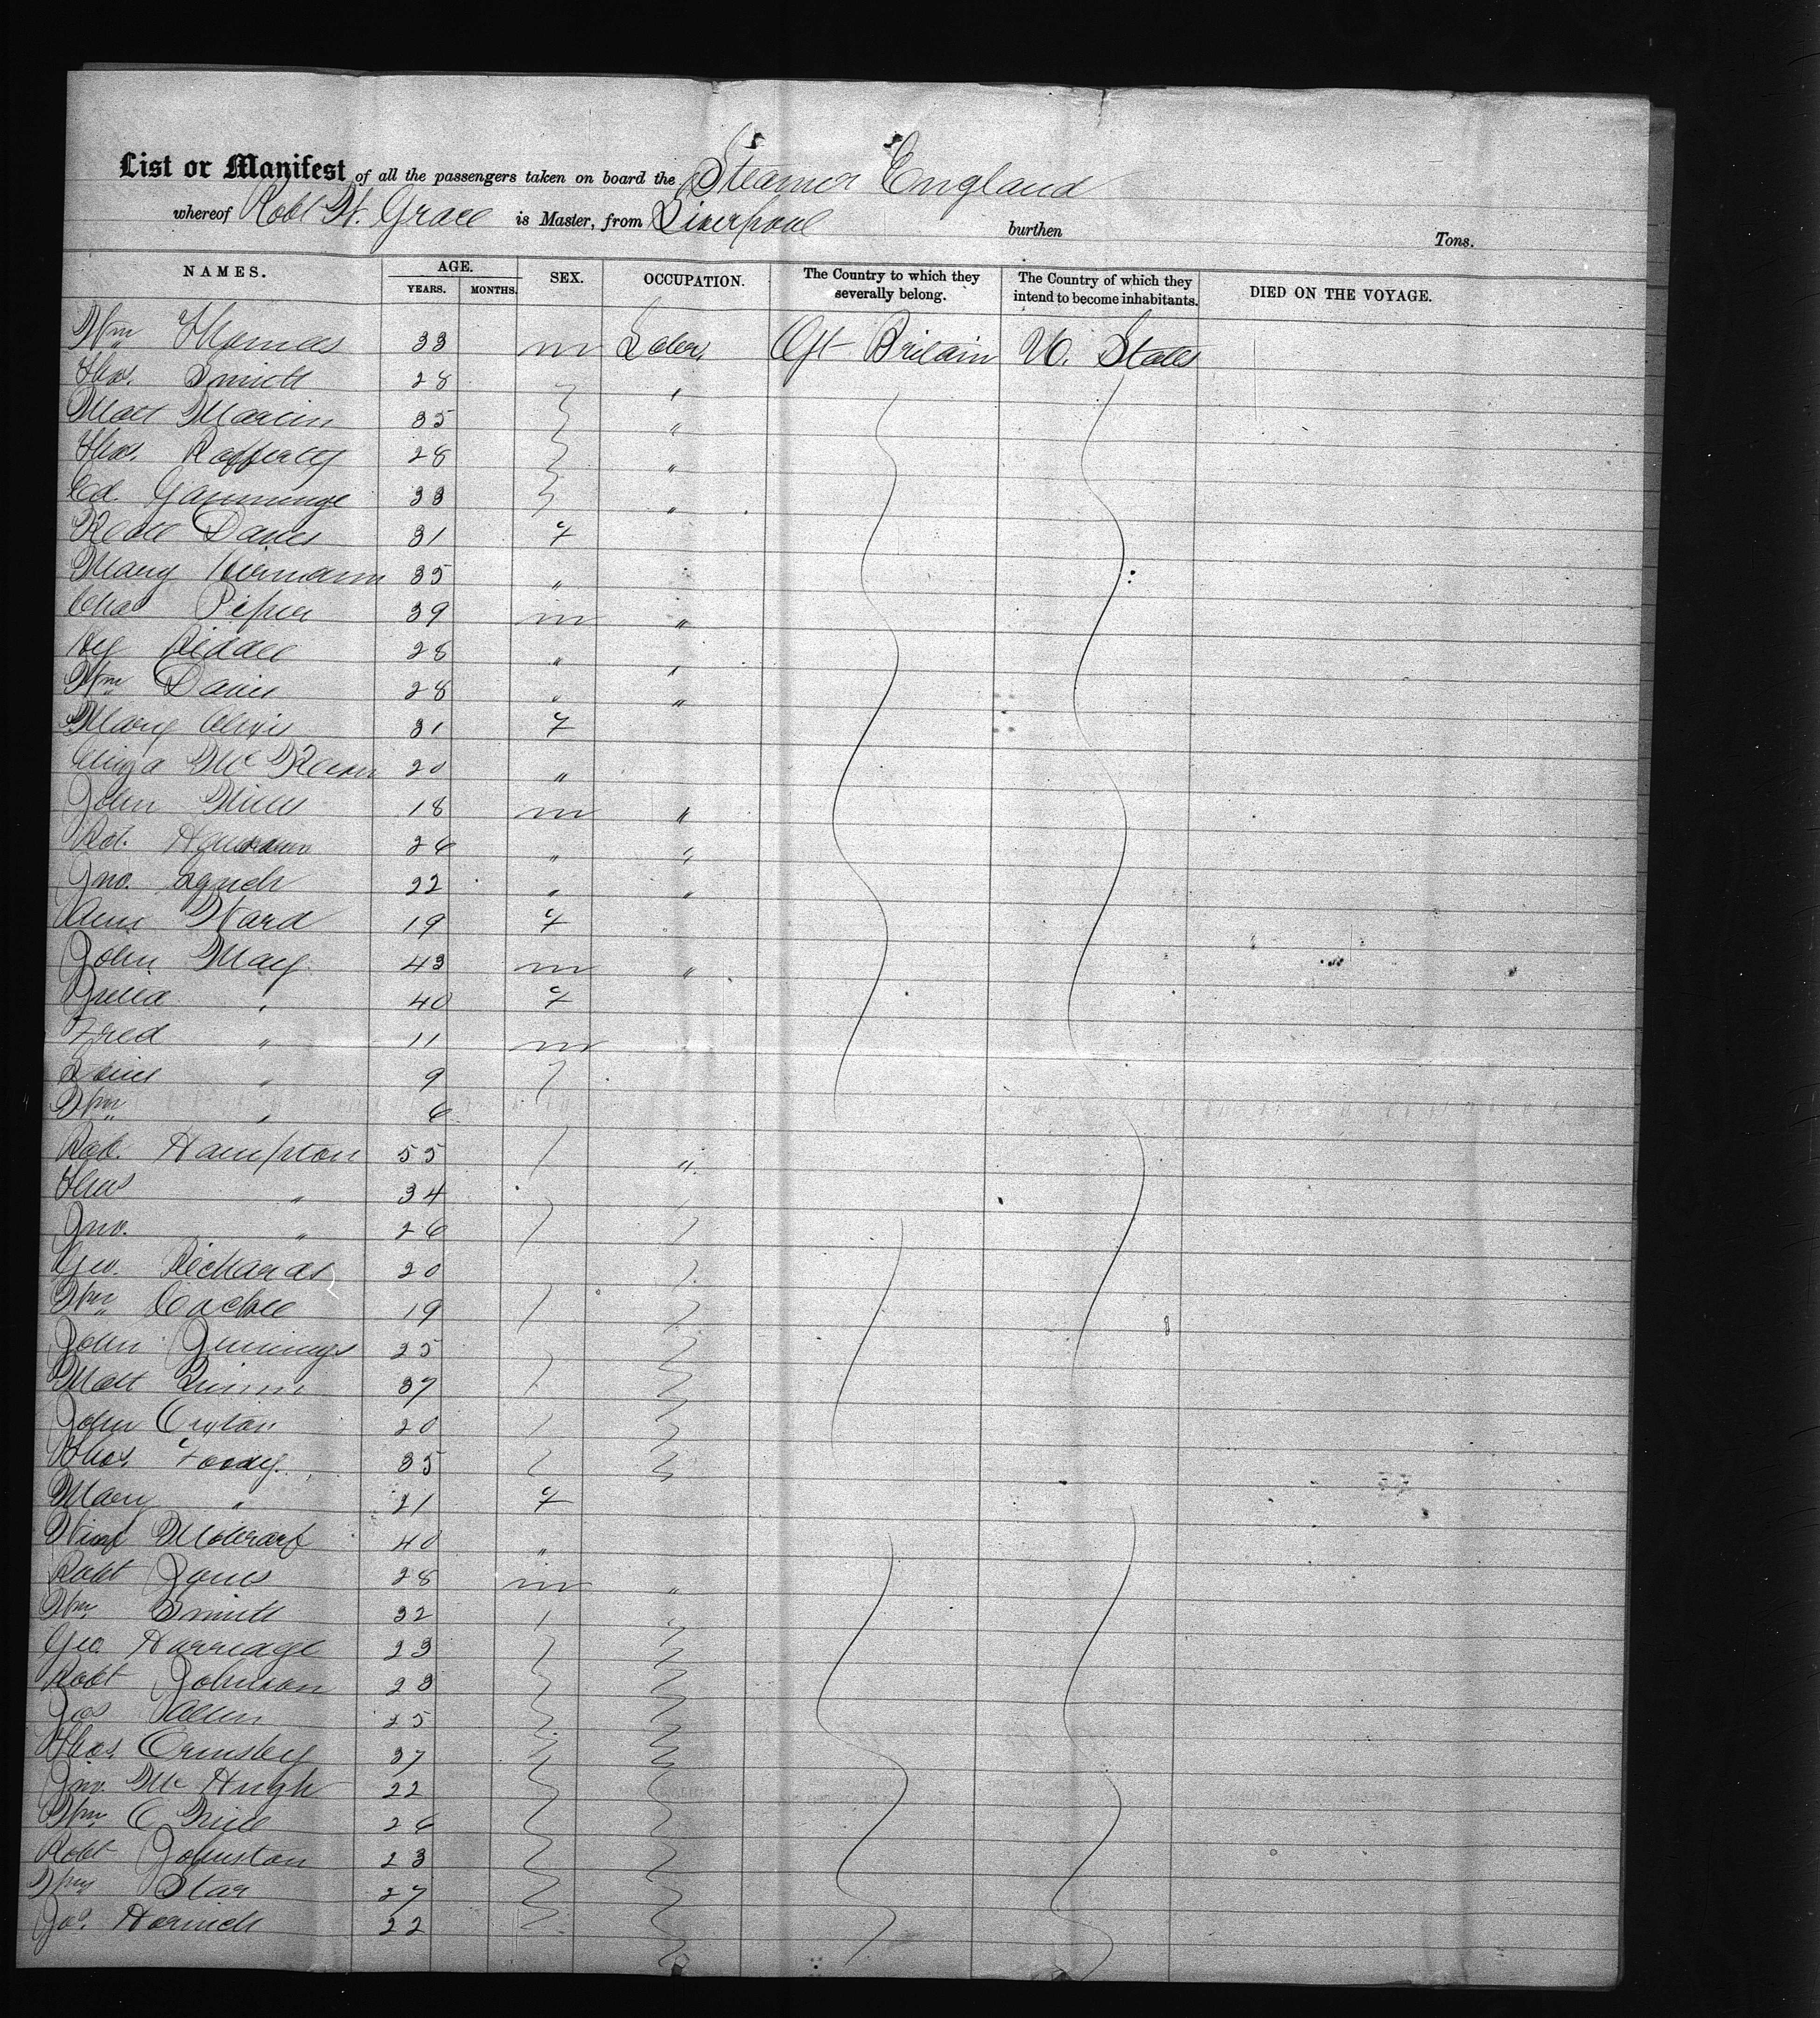 List or Manifest of all the passengers taken on board the Steamer England
whereof Robt W. Grace is Master, from Liverpool burthen Tons.
NAMES. AGE. YEARS. MONTHS. SEX. OCCUPATION. The Country to which they severally belong. The Country of which they intend to become inhabitants. DIED ON THE VOYAGE.
Wm Thomas 33 m Labr Gt Britain U. States
Thos. Smith 28 "
Matt Martin 35 "
Thos. Rafferty 28 "
Ed. 33 "
Davies 31 f
Mary 35 "
Chas Piper 39 m "
Hy 28 " "
Wm Davis 28 " "
Mary 31 f
Eliza Mc 20 "
John 18 m "
Rob. 26 " "
Jno. Lynch 22 " "
Ann Ward 19 f
John May 43 m "
Julia " 40 f
Fred " 11 m
" 9
Wm " 6
Rob. Hampton 55 "
Thos " 34
Jno. " 26
Geo. Richards 20
Wm 19
John Jennings 25
Matt Quinn 37
John 20
Thos. Foody 35
Mary " 21 f
40 "
Robt Jones 28 m "
Wm Smith 32
Geo Harredge 23
Robt Johnson 23
Jos Allen 25
Thos. Ormsby 37
Jno. Mc Hugh 22
Wm O Neill 26
Robt Johnston 23
Wm Star 27
Jos. 22